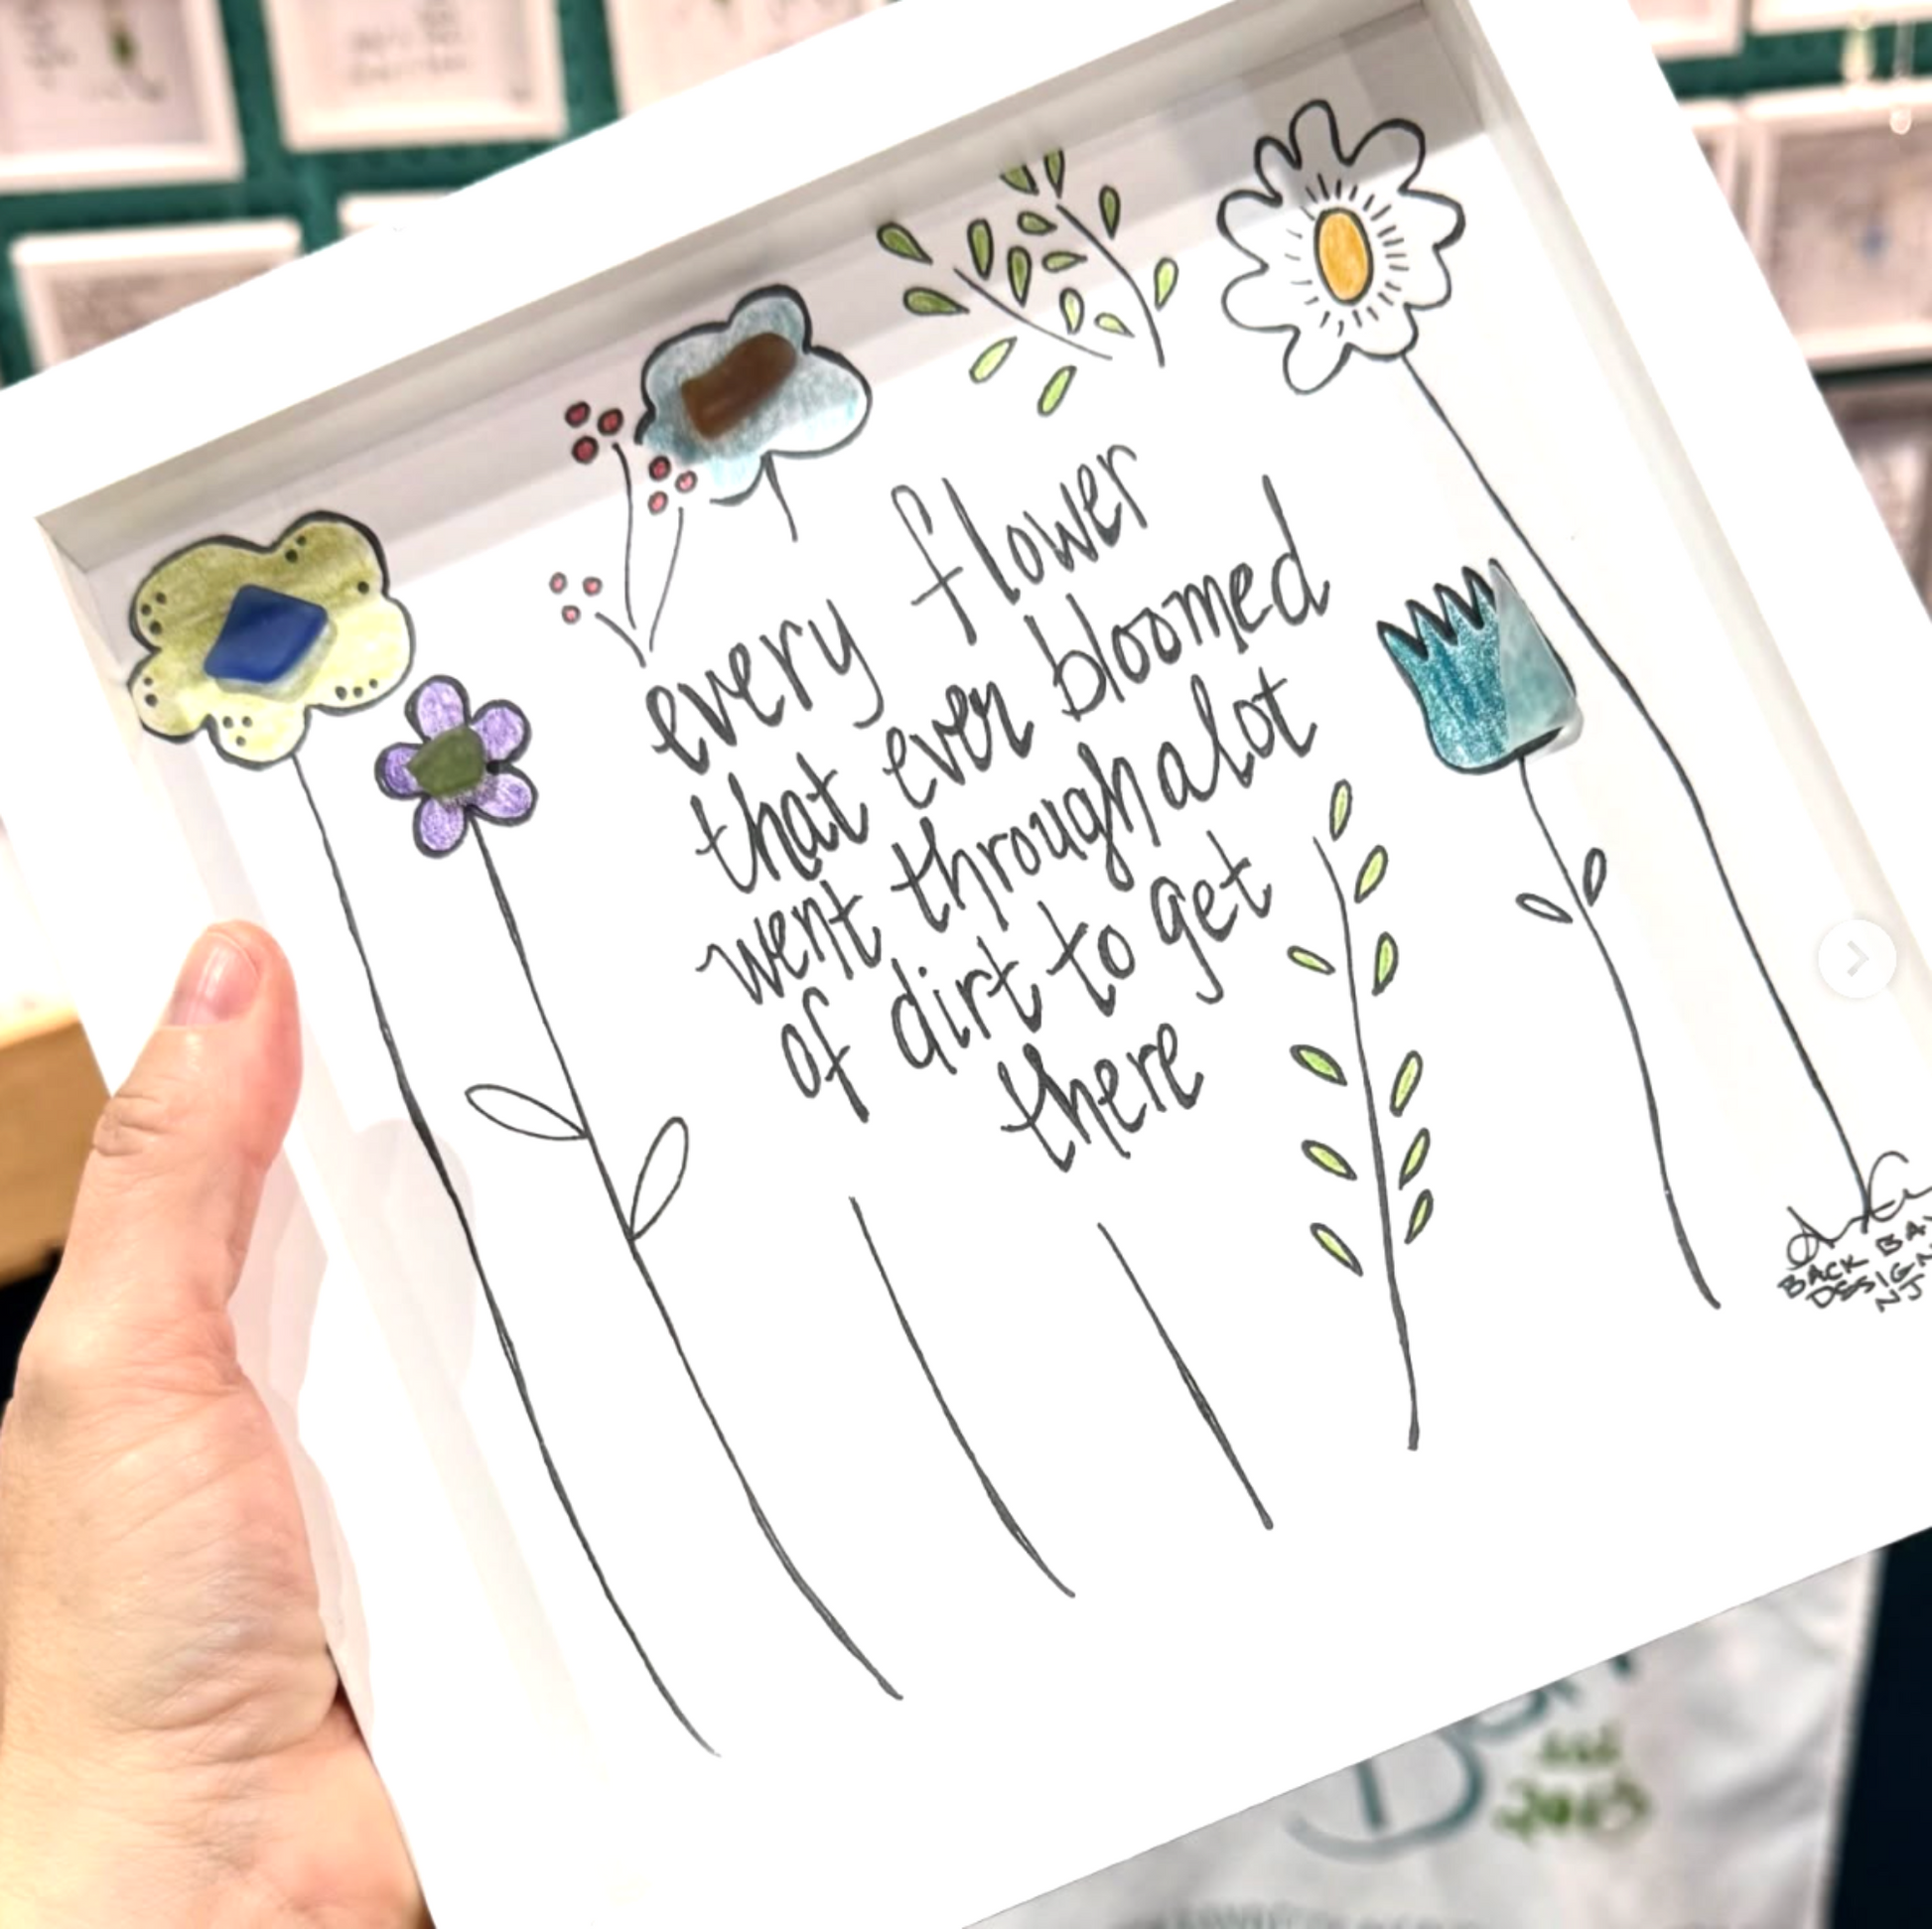 every flower
that ever bloomed
went through alot
of dirt to get
there
BACK BAY
DESIGN
NJ